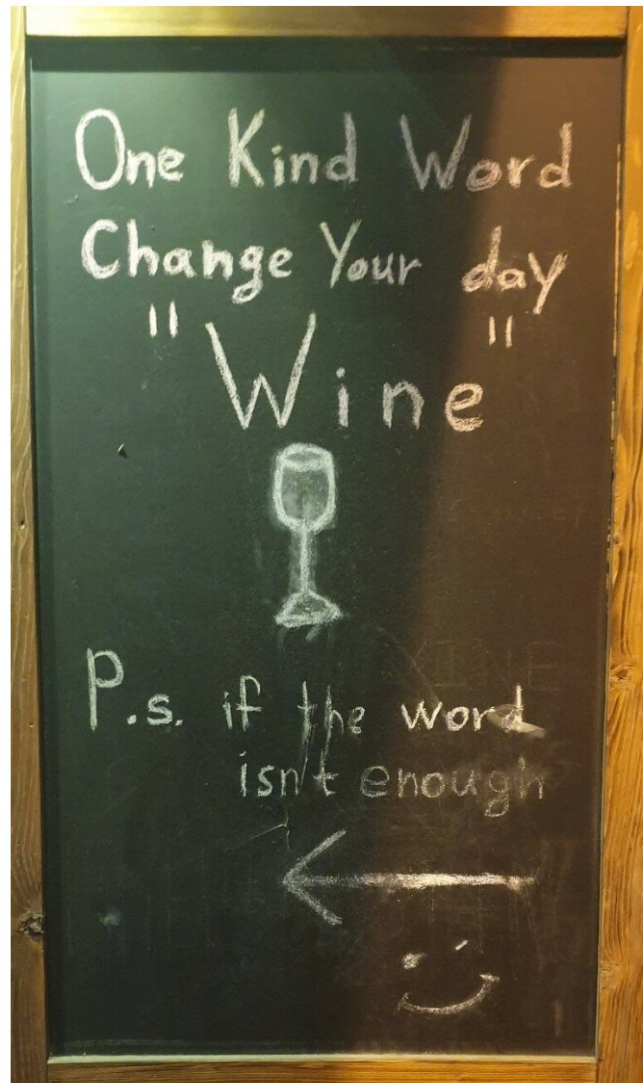 One Kind Word
Change Your day
"Wine"
P.s. if the word
isn't enough